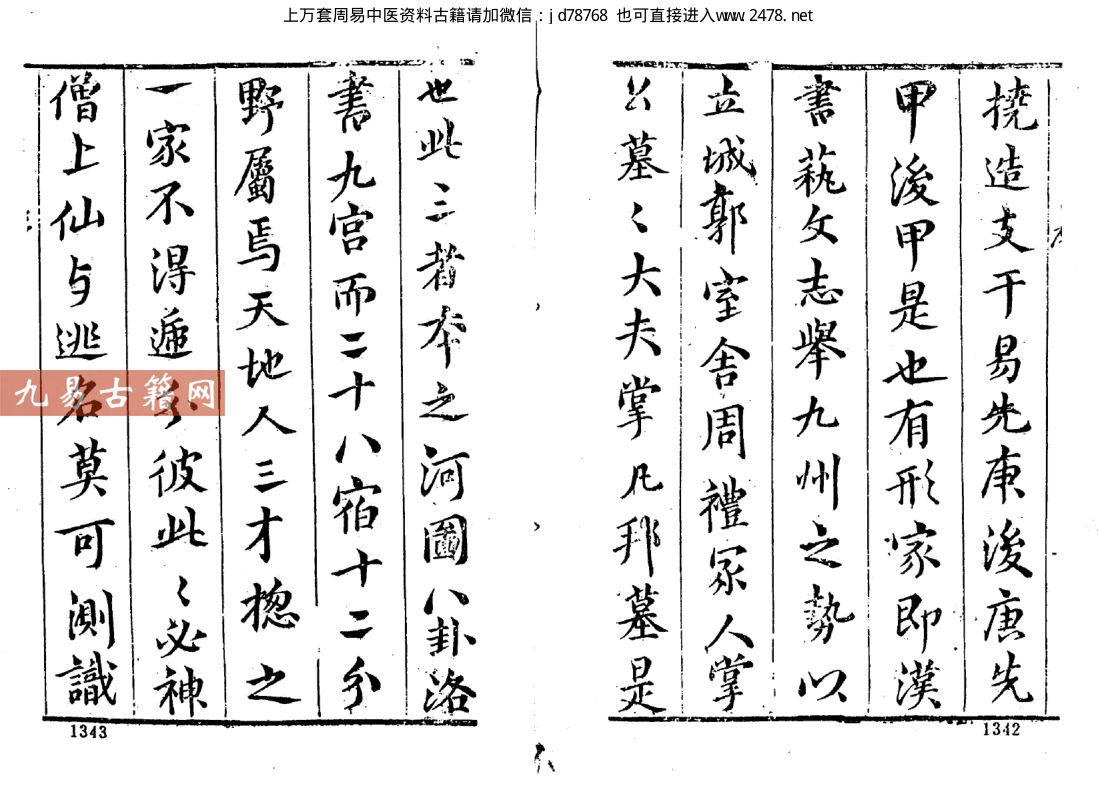 上万套周易中医资料古籍请加微信：jd78768 也可直接进入www.2478.net
撓造支干易先庚後庚先
甲後甲是也有形家即漢
書蓺文志舉九州之勢以
立城郭室舍周禮冢人掌
公墓〻大夫掌凡邦墓是
1342
也此三者本之河圖八卦洛
書九宮而二十八宿十二分
野屬焉天地人三才揔之
一家不得遞分彼此〻必神
僧上仙与逃名莫可測識
1343
九易古籍网